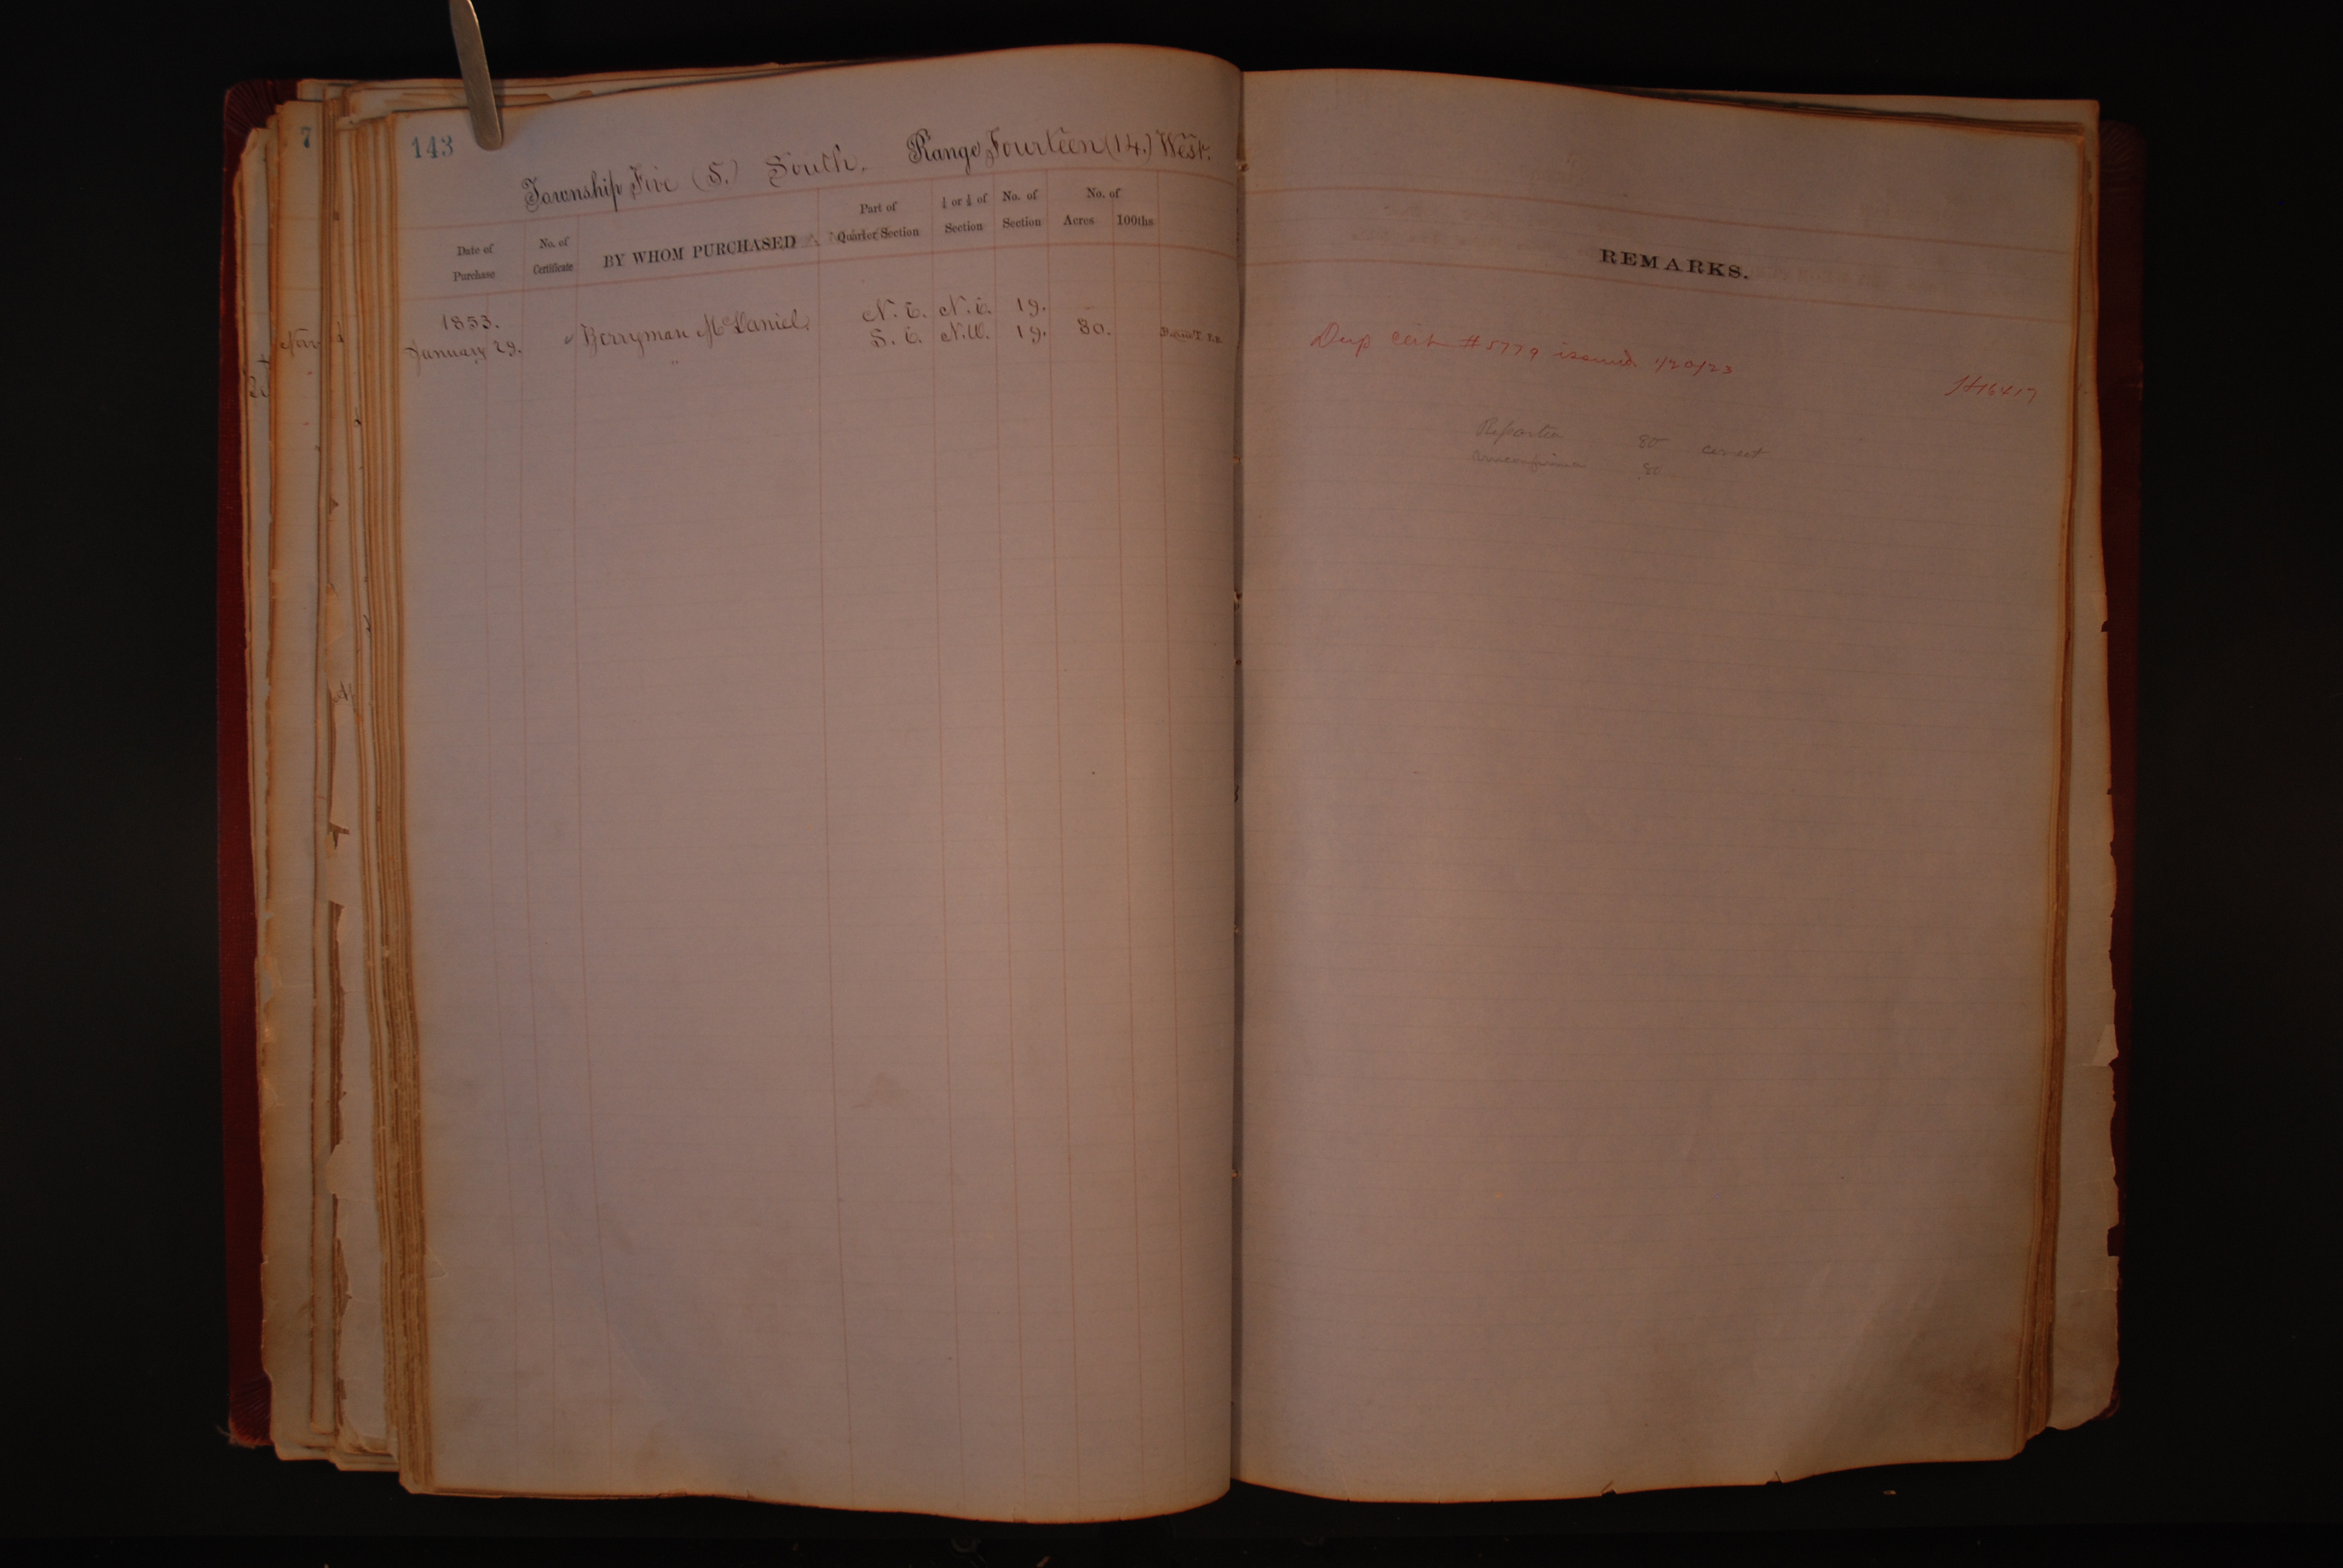 7
143
Township Five (5.) South, Range Fourteen (14.) West.
Date of Purchase
No. of Certificate
BY WHOM PURCHASED
Part of Quarter Section
½ or ¼ of Section
No. of Section
No. of
Acres 100ths
REMARKS.
1853.
January 29. Berryman McDaniel, N. E. N. E. 19.
" S. E. N.W. 19. 80.
Dup cert #5779 issued 1/20/23
H16417
Reported 80 correct
Unconfirmed 80